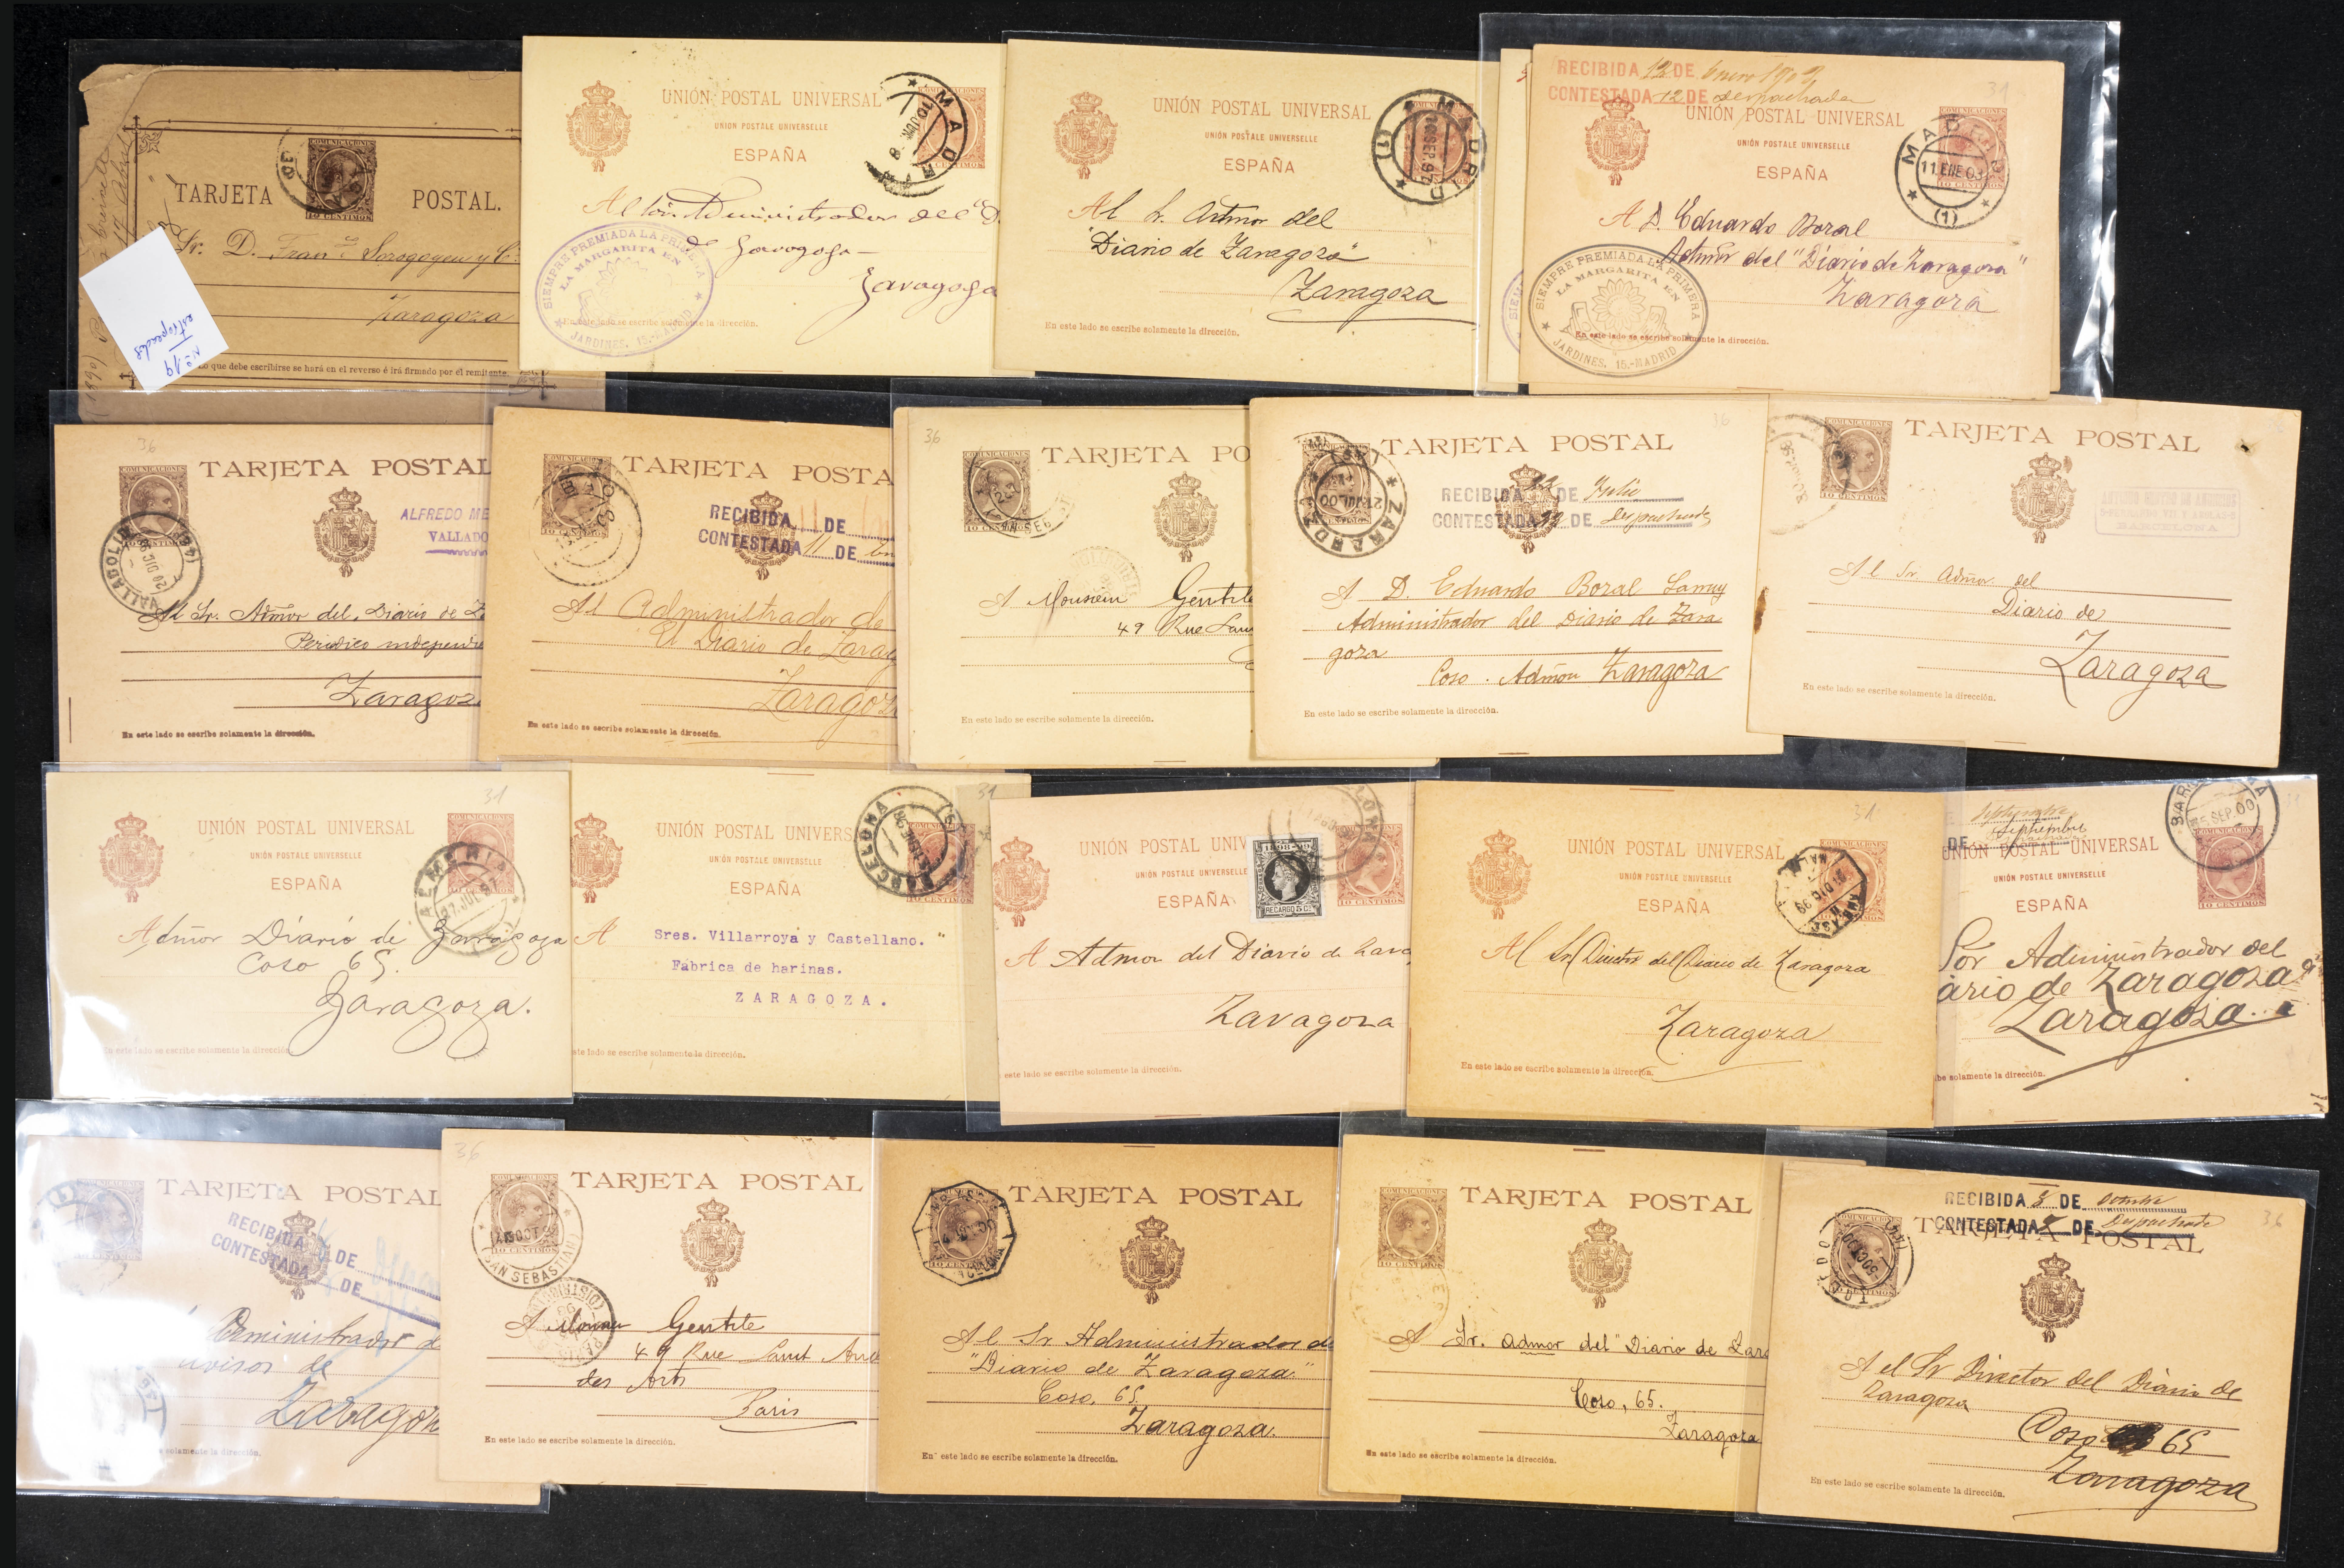 COMUNICACIONES
10 CENTIMOS
TARJETA POSTAL.
Sr. D.
Zaragoza
Lo que debe escribirse se hará en el reverso é irá firmado por el remitente.
Nº 19
UNIÓN POSTAL UNIVERSAL
UNION POSTALE UNIVERSELLE
ESPAÑA
MADRID
de Zaragoza
Zaragoza
SIEMPRE PREMIADA LA PRIMERA
LA MARGARITA EN
JARDINES, 15.-MADRID
En este lado se escribe solamente la dirección.
UNIÓN POSTAL UNIVERSAL
UNIÓN POSTALE UNIVERSELLE
ESPAÑA
MADRID
(1)
SEP. 97
Al Sr. Admor del
"Diario de Zaragoza"
Zaragoza
En este lado se escribe solamente la dirección.
RECIBIDA 12 DE Enero 1903
CONTESTADA 12 DE despachada
31
COMUNICACIONES
UNIÓN POSTAL UNIVERSAL
UNIÓN POSTALE UNIVERSELLE
ESPAÑA
10 CENTIMOS
MADRID
11.ENE.03
(1)
A D. Eduardo Boral
Admor del "Diario de Zaragoza"
Zaragoza
SIEMPRE PREMIADA LA PRIMERA
LA MARGARITA EN
JARDINES, 15.-MADRID
En este lado se escribe solamente la dirección.
36
COMUNICACIONES
TARJETA POSTAL
10 CENTIMOS
ALFREDO ME
VALLADO
VALLADOLID
Al Sr. Admor del Diario de Za
Periodico independie
Zaragoz
En este lado se escribe solamente la dirección.
TARJETA POSTA
RECIBIDA DE
CONTESTADA 11 DE En
Al Administrador de
El Diario de Zarag
Zaragoz
En este lado se escribe solamente la dirección.
36
TARJETA PO
A Monsieur Gentile
49 Rue
En este lado se escribe solamente la dirección.
36
TARJETA POSTAL
RECIBIDA 22 DE Julio
CONTESTADA 22 DE Despachada
21.JUL.00
A D. Eduardo Boral
Administrador del Diario de Zara
goza
Coso. Admón Zaragoza
En este lado se escribe solamente la dirección.
COMUNICACIONES
TARJETA POSTAL
10 CENTIMOS
Al Sr. Admor. del
Diario de
Zaragoza
En este lado se escribe solamente la dirección.
31
UNIÓN POSTAL UNIVERSAL
UNIÓN POSTALE UNIVERSELLE
ESPAÑA
ALMERIA
27.JUL.97
Admor Diario de Zaragoza
Coso 65.
Zaragoza.
En este lado se escribe solamente la dirección.
31
UNIÓN POSTAL UNIVERS
UNIÓN POSTALE UNIVERSELLE
ESPAÑA
BARCELONA
A Sres. Villarroya y Castellano.
Fábrica de harinas.
ZARAGOZA.
ste lado se escribe solamente la dirección.
UNIÓN POSTAL UNIV
UNIÓN POSTALE UNIVERSELLE
ESPAÑA
1898-99
RECARGO 5 Cs
A Admor del Diario de Zarag
Zaragoza
este lado se escribe solamente la dirección.
31
UNIÓN POSTAL UNIVERSAL
UNIÓN POSTALE UNIVERSELLE
ESPAÑA
Al Sr Director del Diario de Zaragoza
Zaragoza
En este lado se escribe solamente la dirección.
DE Septiembre
5.SEP.00
UNIÓN POSTAL UNIVERSAL
UNIÓN POSTALE UNIVERSELLE
ESPAÑA
10 CENTIMOS
Sor Administrador del
ario de Zaragoza
Zaragoza
ibe solamente la dirección.
TARJETA POSTAL
RECIBIDA DE
CONTESTADA DE
Administrador d
avisos de
Zaragoz
solamente la dirección.
36
COMUNICACIONES
TARJETA POSTAL
10 CENTIMOS
SAN SEBASTIAN
Gentile
49 Rue Saint
des Arts
Paris
En este lado se escribe solamente la dirección.
TARJETA POSTAL
Al Sr Administrador de
"Diario de Zaragoza"
Coso, 65
Zaragoza.
En este lado se escribe solamente la dirección.
COMUNICACIONES
TARJETA POSTAL
10 CENTIMOS
A Sr. Admor del "Diario de Zara
Coso, 65.
Zaragoza
En este lado se escribe solamente la dirección.
RECIBIDA 8 DE Octubre
CONTESTADA 8 DE Despachada
36
TARJETA POSTAL
TOLEDO
A el Sr Director del Diario de
Zaragoza
Coso 65
Zaragoza
En este lado se escribe solamente la dirección.